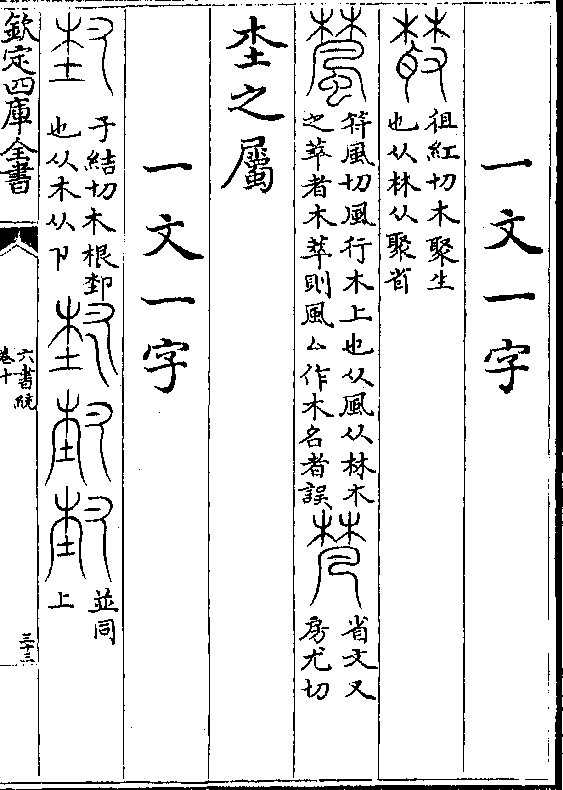 一文一字
徂紅切木聚生
也从林从聚省
符風切風行木上也从風从林木
之萃者木萃則風作木名者誤
省文又
房尤切
杢之屬
一文一字
子結切木根
也从木从卩
並同
上
欽定四庫全書
六書統
卷十
三十三